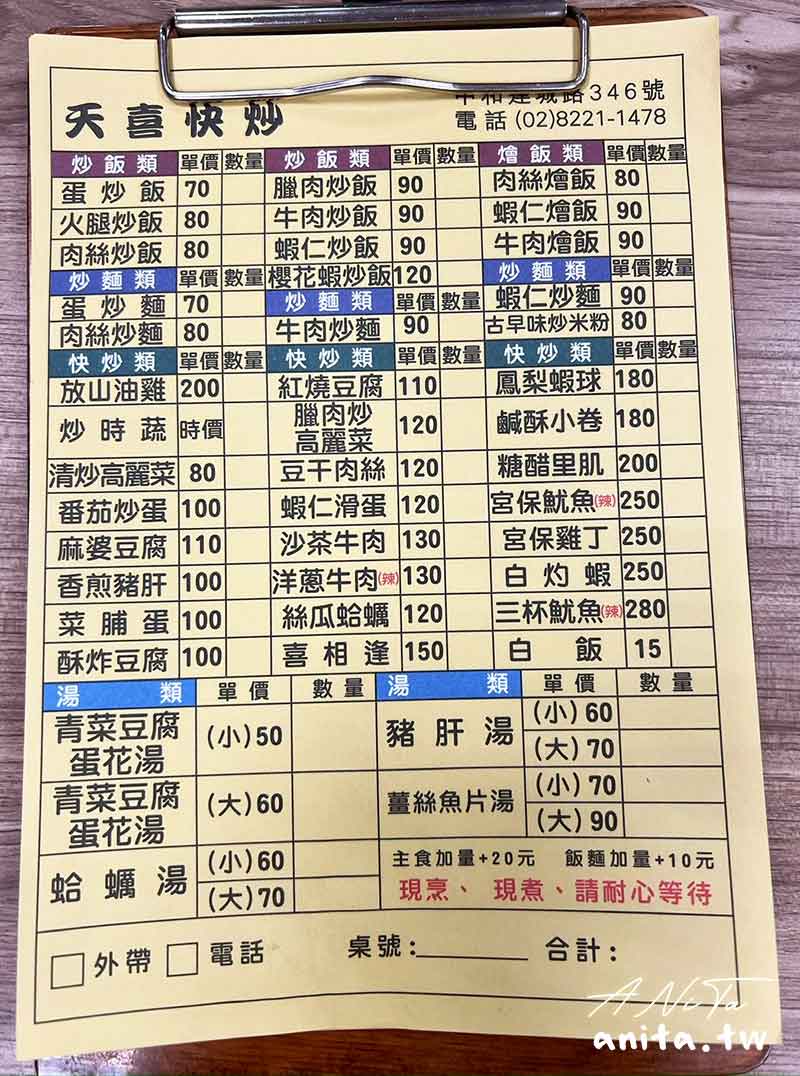 天喜快炒
中和連城路346號
電話(02)8221-1478
炒飯類 單價 數量 炒飯類 單價 數量 燴飯類 單價 數量
蛋炒飯 70 臘肉炒飯 90 肉絲燴飯 80
火腿炒飯 80 牛肉炒飯 90 蝦仁燴飯 90
肉絲炒飯 80 蝦仁炒飯 90 牛肉燴飯 90
炒麵類 單價 數量 櫻花蝦炒飯 120 炒麵類 單價 數量
蛋炒麵 70 炒麵類 單價 數量 蝦仁炒麵 90
肉絲炒麵 80 牛肉炒麵 90 古早味炒米粉 80
快炒類 單價 數量 快炒類 單價 數量 快炒類 單價 數量
放山油雞 200 紅燒豆腐 110 鳳梨蝦球 180
炒時蔬 時價 臘肉炒高麗菜 120 鹹酥小卷 180
清炒高麗菜 80 豆干肉絲 120 糖醋里肌 200
番茄炒蛋 100 蝦仁滑蛋 120 宮保魷魚(辣) 250
麻婆豆腐 110 沙茶牛肉 130 宮保雞丁 250
香煎豬肝 100 洋蔥牛肉(辣) 130 白灼蝦 250
菜脯蛋 100 絲瓜蛤蠣 120 三杯魷魚(辣) 280
酥炸豆腐 100 喜相逢 150 白飯 15
湯類 單價 數量 湯類 單價 數量
青菜豆腐蛋花湯 (小)50 豬肝湯 (小)60
(大)70
青菜豆腐蛋花湯 (大)60 薑絲魚片湯 (小)70
(大)90
蛤蠣湯 (小)60
(大)70
主食加量+20元 飯麵加量+10元
現烹、現煮、請耐心等待
外帶 電話 桌號: 合計:
ANiTa
anita.tw